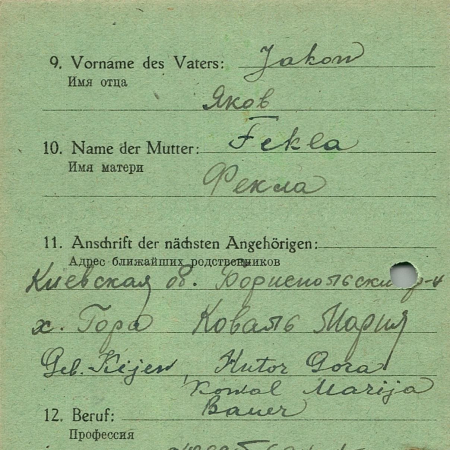 9. Vorname des Vaters: Jakow
Имя отца
Яков
10. Name der Mutter: Fekla
Имя матери
Фекла
11. Anschrift der nächsten Angehörigen:
Адрес ближайших родственников
Киевская об. Бориспольский р-н
х. Гора Коваль Мария
Geb. Kijew, Hutor Gora
Kowal Marija
12. Beruf: Bauer
Профессия